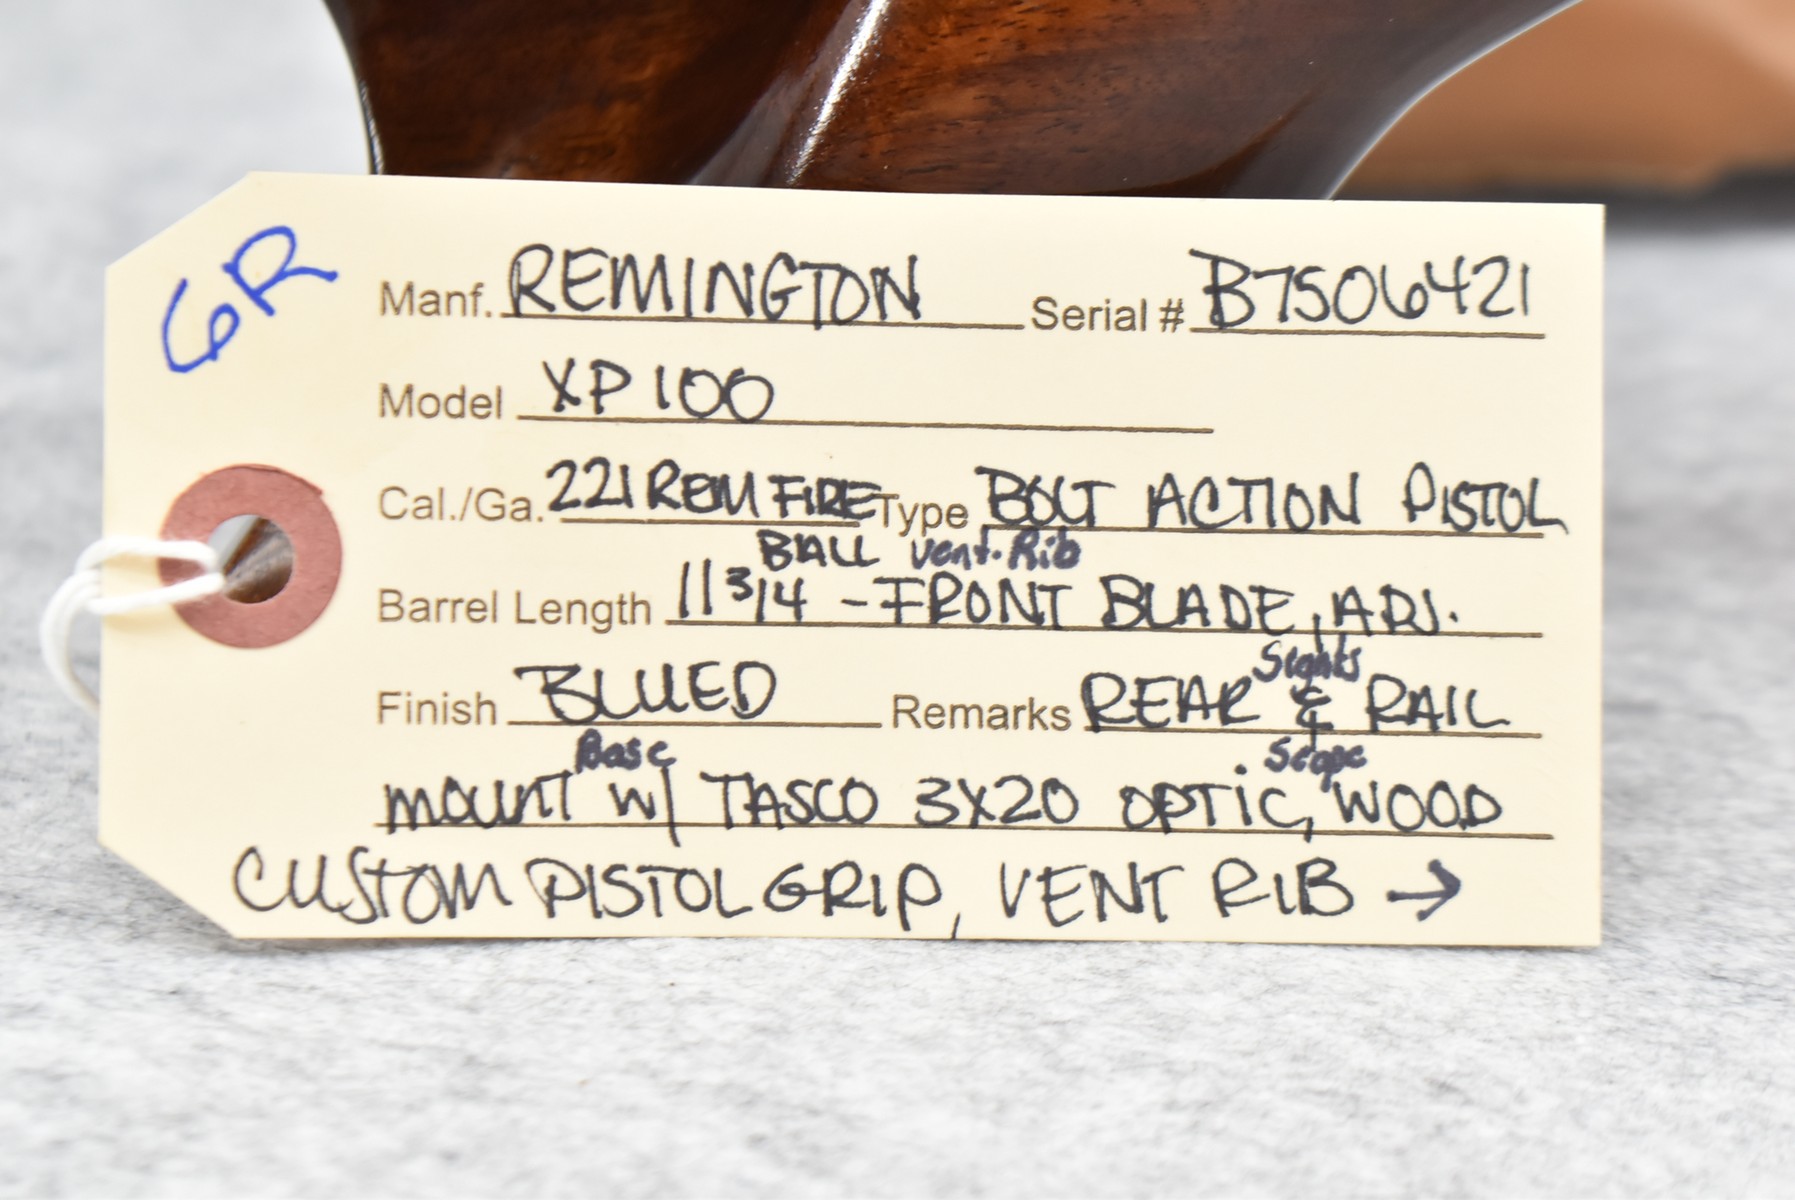 6R
Manf. REMINGTON Serial # B7506421
Model XP100
Cal./Ga. 221 REM FIRE Type BOLT ACTION PISTOL
BALL vent. Rib
Barrel Length 11 3/4 - FRONT BLADE, ADJ.
Sights
Finish BLUED Remarks REAR & RAIL
Base Scope
MOUNT w/ TASCO 3X20 OPTIC, WOOD
CUSTOM PISTOL GRIP, VENT RIB →